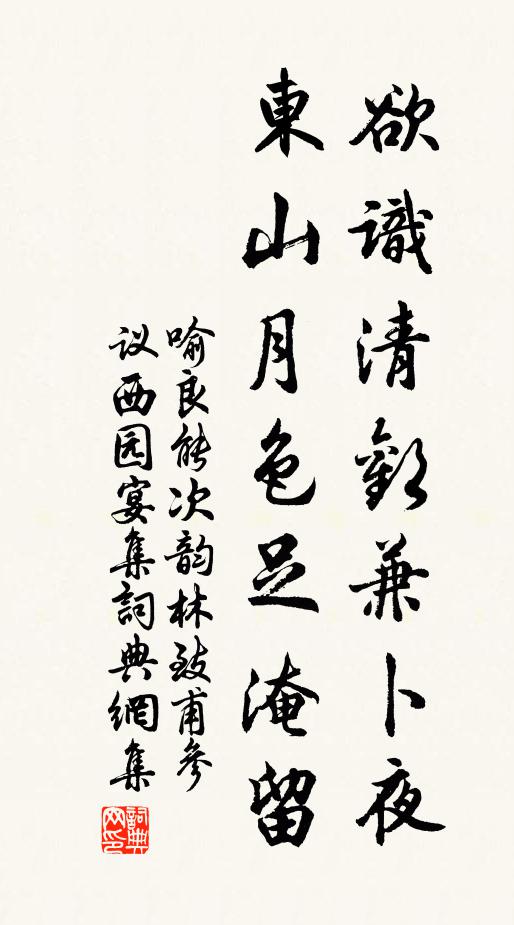 欲識清歡兼卜夜
東山月色足淹留
喻良能次韵林致甫參
议西园宴集詞典網集
詞典
网印